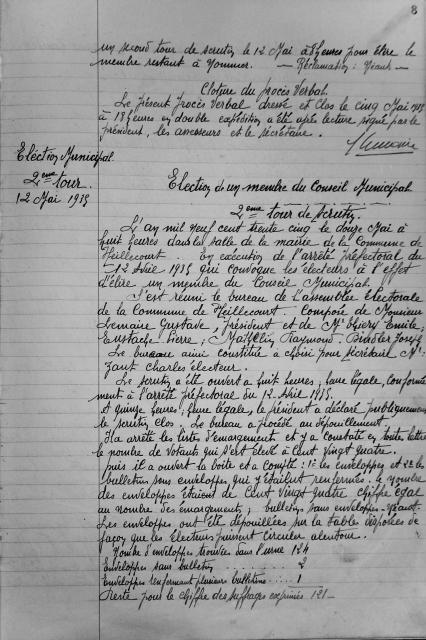 8
un second tour de scrutin le 12 Mai à 8 heures pour élire le
membre restant à nommer. — Réclamation: Néant —
Clôture du Procès Verbal
Le présent Procès Verbal dressé et clos le cinq Mai 1935
à 18 heures en double expédition a été après lecture signé par le
président, les assesseurs et le secrétaire.
Lemaire
Election Municipal
2eme tour.
12 Mai 1935
Election de un membre du Conseil Municipal
2eme tour de scrutin.
L'An mil neuf cent trente cinq le douze Mai à
huit heures dans la salle de la mairie de la Commune de
Heillecourt. En exécution de l'arrêté préfectoral du
12 Avril 1935 qui convoque les électeurs à l'effet
d'élire un membre du Conseil Municipal.
S'est réuni le bureau de l'assemblée électorale
de la Commune de Heillecourt. Composée de Monsieur
Lemaire Gustave, président et de Mrs Thiéry Emile,
Eustache Pierre, Raymond, Joseph
Le bureau ainsi constitué a choisi pour secrétaire Mr
Charles électeur.
Le scrutin a été ouvert à huit heures, heure légale, conformé
ment à l'arrêté préfectoral du 12 Avril 1935.
Et quinze heures, heure légale, le président a déclaré publiquement
le scrutin clos. Le bureau a procédé au dépouillement.
Il a arrêté les listes d'émargement et y a constaté en toutes lettres
le nombre de votants qui s'est élevé à Cent Vingt quatre.
puis il a ouvert la boîte et a compté: 1° les enveloppes et 2° les
bulletins sans enveloppes qui s'y étaient renfermés. Le nombre
des enveloppes étaient de Cent Vingt quatre chiffre égal
au nombre des émargement; bulletins sans enveloppes. Néant.
Les enveloppes ont été dépouillées sur la table disposées de
façon que les électeurs puissent circuler alentour.
Nombre d'enveloppes trouvées dans l'urne 124
Enveloppes sans bulletin ........ 2
Enveloppes renfermant plusieurs bulletins ..... 1
Reste pour le chiffre des suffrages exprimés 121 —